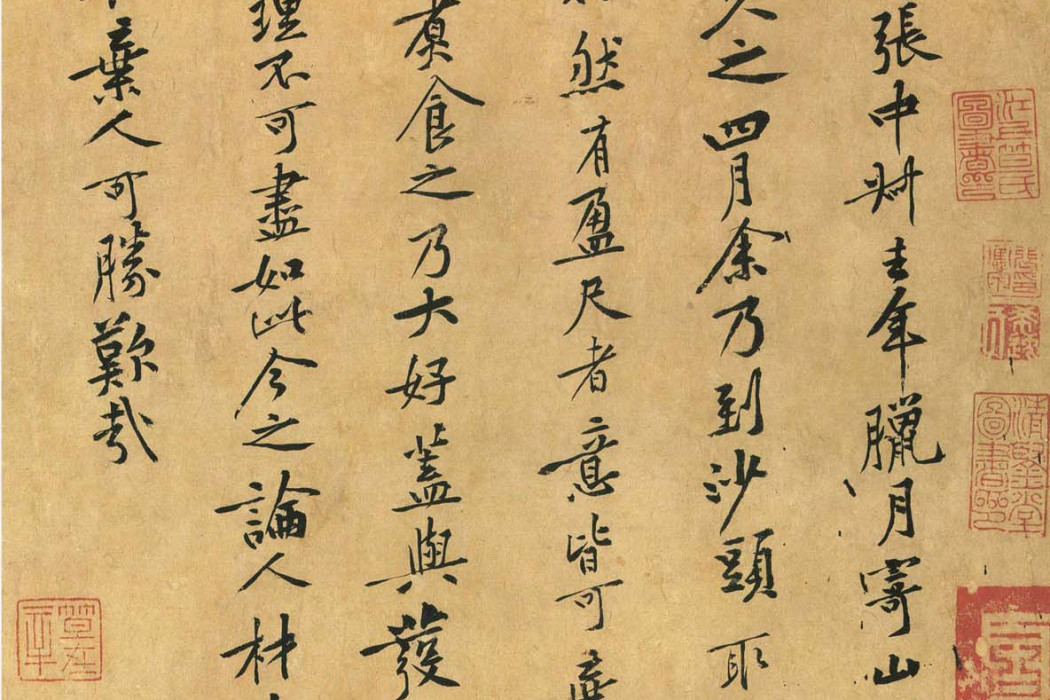 張中叔去年臘月寄山
久之四月余乃到沙頭取
然有盈尺者意皆可棄
煑食之乃大好蓋與發
理不可盡如此今之論人材
棄人可勝歎哉